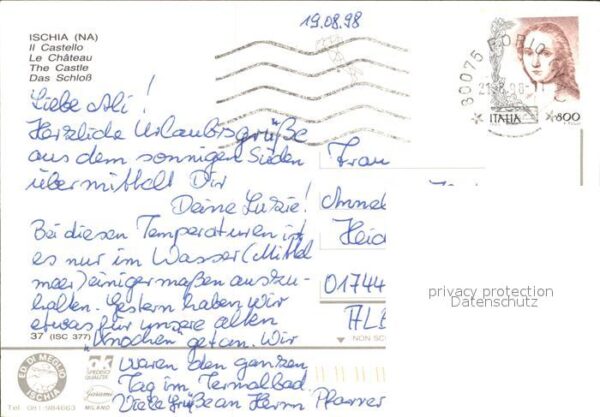 19.08.98
ISCHIA (NA)
Il Castello
Le Château
The Castle
Das Schloß
80075 FORIO
ITALIA 800
Liebe Ali!
Herzliche Urlaubsgrüße
aus dem sonnigen Süden
übermittelt Dir
Deine Luzie!
Bei diesen Temperaturen ist
es nur im Wasser (Mittel
meer) einigermaßen auszu-
halten. Gestern haben wir
etwas für unsere alten
Knochen getan. Wir
waren den ganzen
Tag im Termalbad.
Viele Grüße an Herrn Pfarrer
Frau
Heid
01744
37 (ISC 377)
NON SC
ED. DI MEGLIO
ISCHIA
Tel. 081-984663
MILANO
privacy protection
Datenschutz